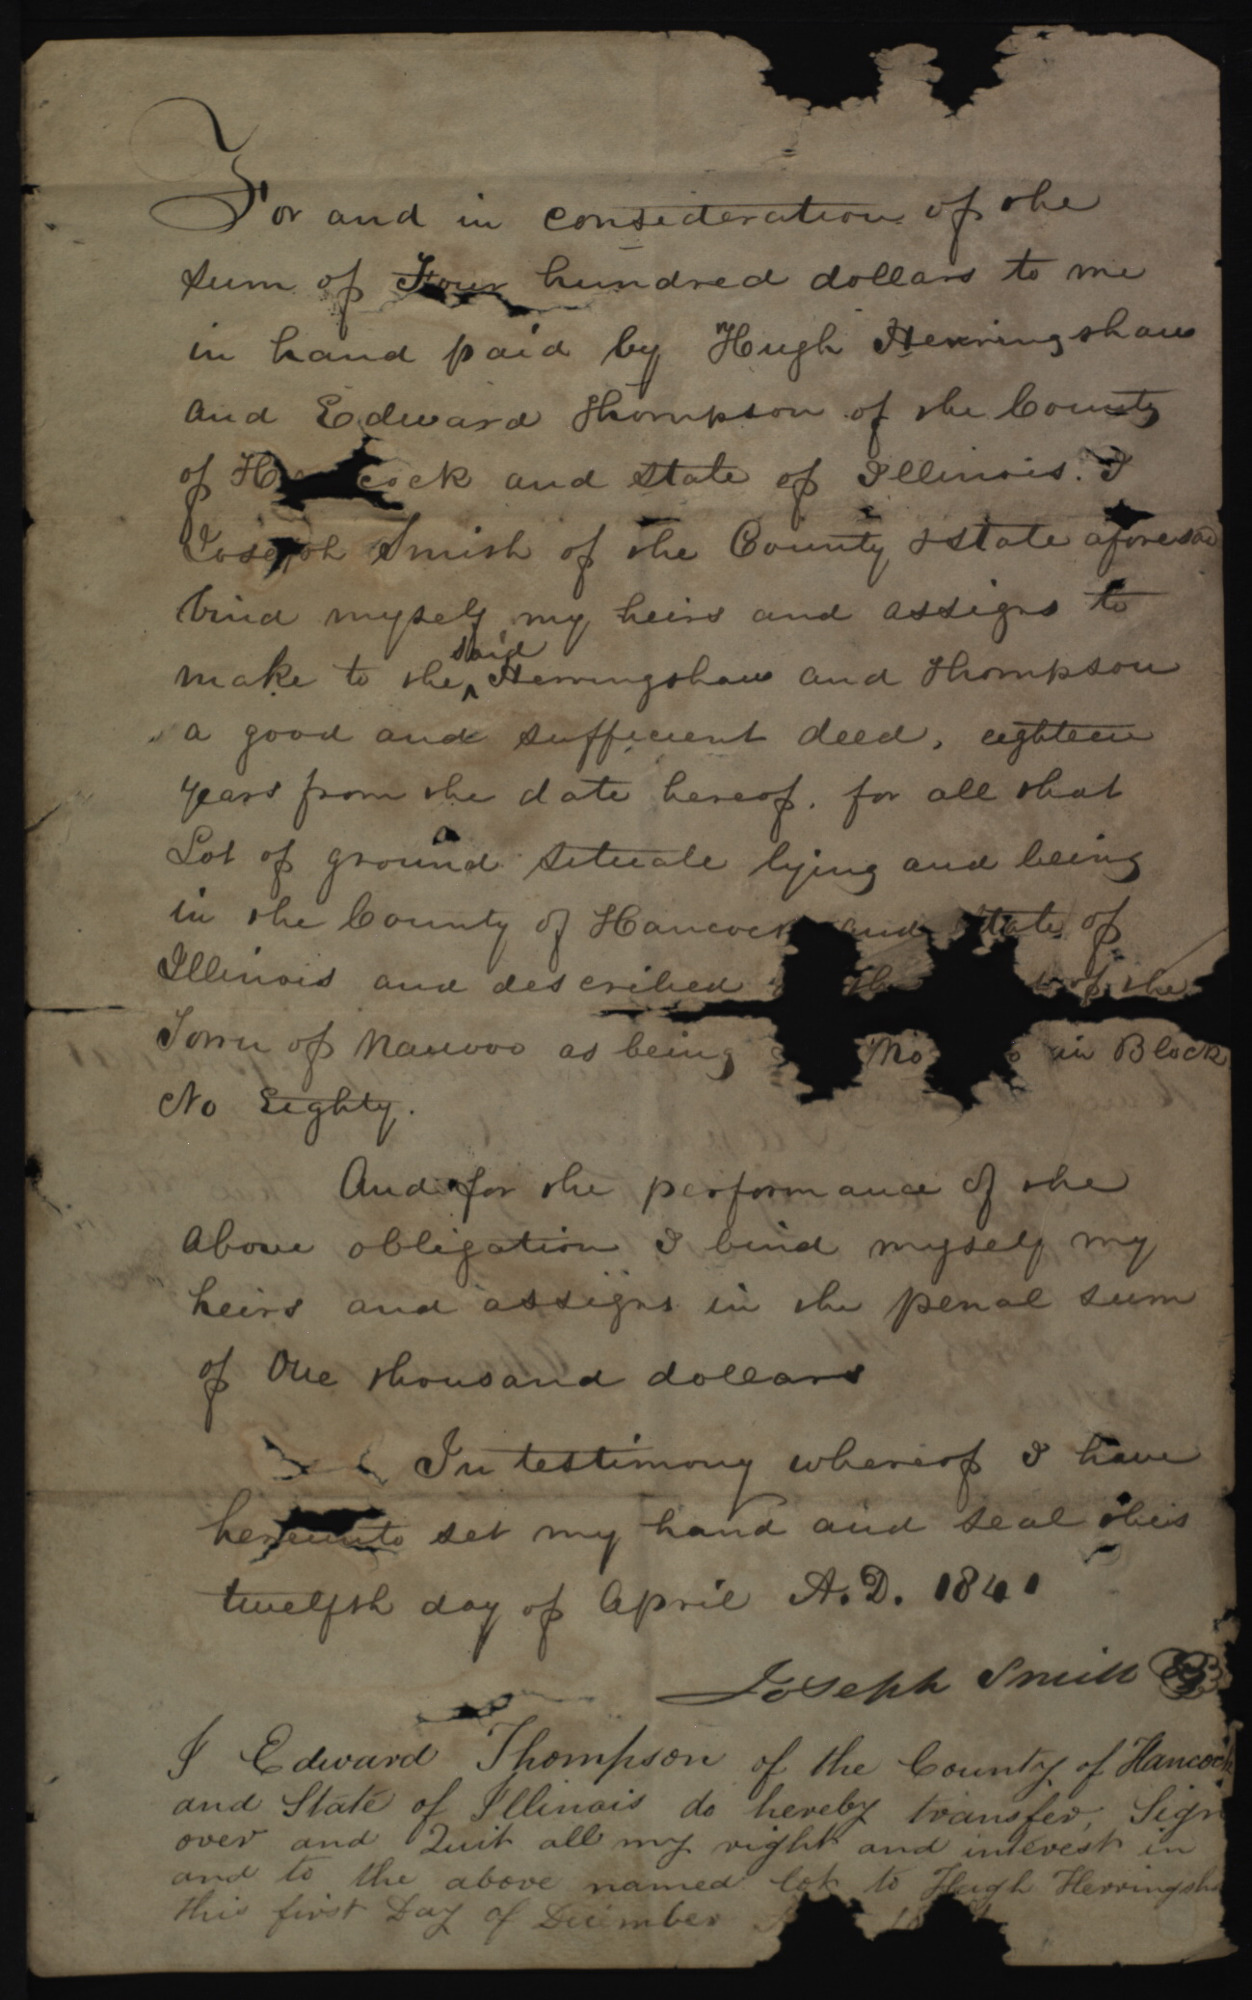 For and in consideration of the
sum of Four hundred dollars to me
in hand paid by Hugh Herringshaw
and Edward Thompson of the County
of H cock and State of Illinois. I
Joseph Smith of the County & State aforesaid
bind myself my heirs and assigns to
said
make to the ^ Herringshaw and Thompson
a good and sufficient deed, eighteen
years from the date hereof. for all that
Lot of ground situate lying and being
in the County of Hancock and State of
Illinois and described of the
Town of Nauvoo as being No in Block
No Eighty.
And for the performance of the
above obligation I bind myself my
heirs and assigns in the penal sum
of One thousand dollars
In testimony whereof I have
hereunto set my hand and seal this
twelfth day of April A.D. 1841
Joseph Smith
I Edward Thompson of the County of Hancock
and State of Illinois do hereby transfer, Sign
over and Quit all my right and interest in
and to the above named lot to Hugh Herringsha
this first Day of December